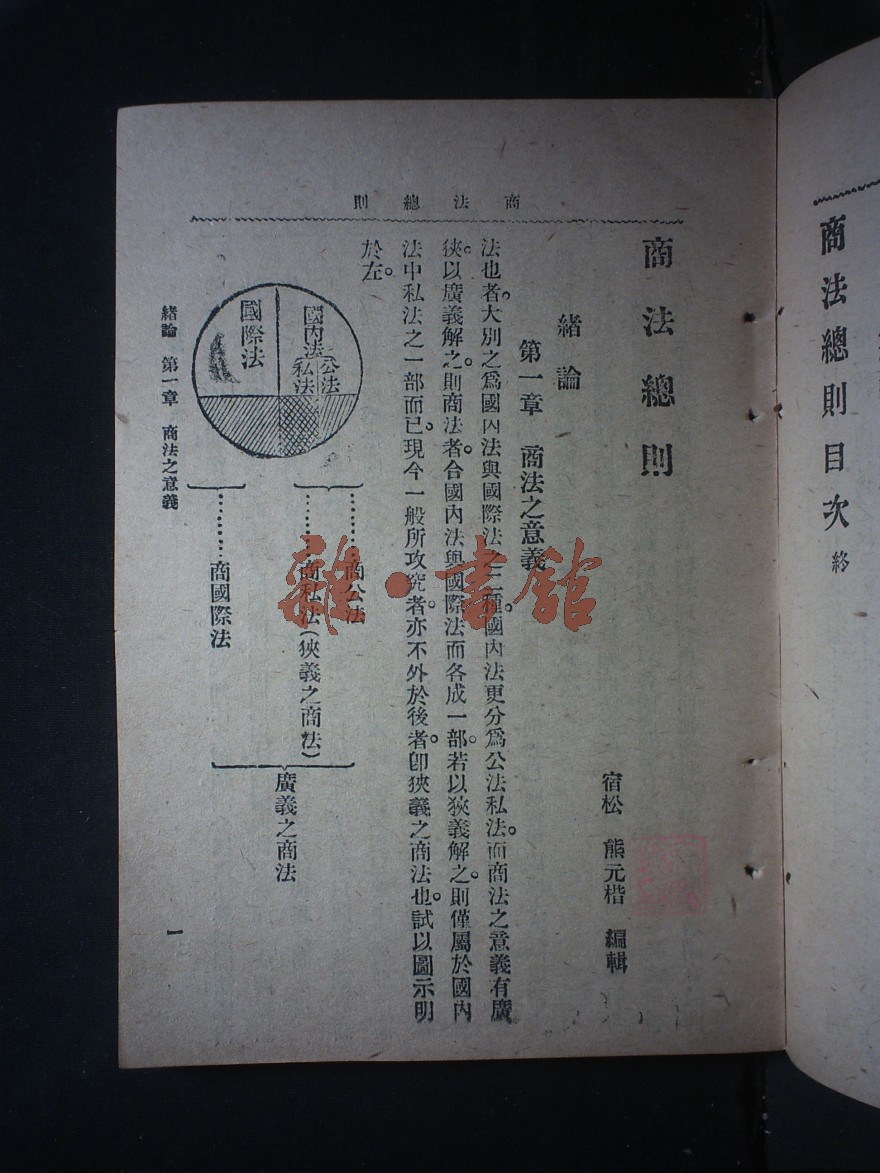 商法總則目次 終
商法總則
商法總則
宿松 熊元楷 編輯
緒論
第一章 商法之意義
法也者。大別之爲國內法與國際法之二種。國內法更分爲公法私法。而商法之意義有廣
狹。以廣義解之。則商法者。合國內法與國際法而各成一部。若以狹義解之。則僅屬於國內
法中私法之一部而已。現今一般所攻究者。亦不外於後者。卽狹義之商法也。試以圖示明
於左。
國內法
公法
私法
國際法
商公法
商私法(狹義之商法)
商國際法
廣義之商法
緒論 第一章 商法之意義
一
雜·書館